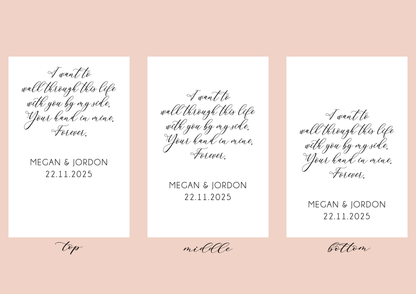 I want to
walk through this life
with you by my side.
Your hand in mine.
Forever.
MEGAN & JORDON
22.11.2025
top
I want to
walk through this life
with you by my side.
Your hand in mine.
Forever.
MEGAN & JORDON
22.11.2025
middle
I want to
walk through this life
with you by my side.
Your hand in mine.
Forever.
MEGAN & JORDON
22.11.2025
bottom